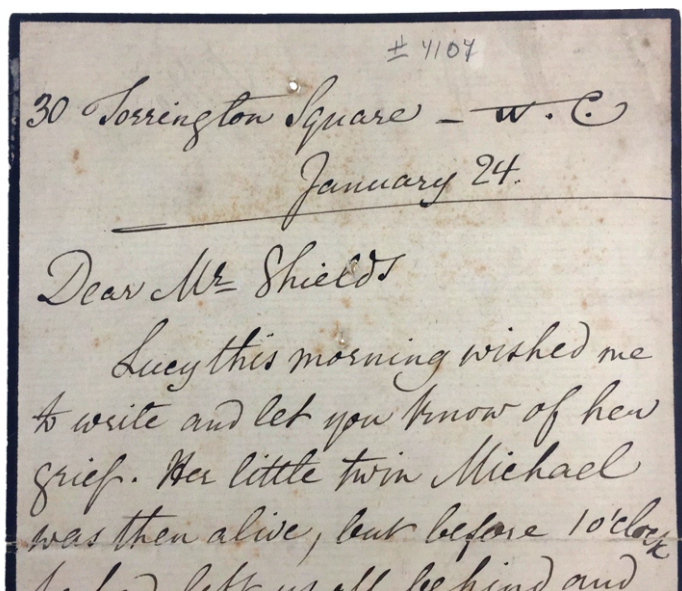 # 7107
30 Torrington Square — W. C.
January 24.
Dear Mr Shields
Lucy this morning wished me
to write and let you know of her
grief. Her little twin Michael
was then alive, but before 1 o'clock
he had left us all behind and